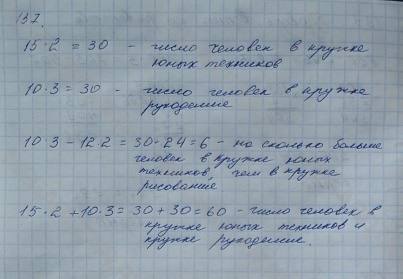 137.
15·2 = 30 - число человек в кружке
юных техников
10·3 = 30 - число человек в кружке
рукоделие
10·3 - 12·2 = 30·24 = 6 - на сколько больше
человек в кружке юных
техников, чем в кружке
рисование
15·2 + 10·3 = 30 + 30 = 60 - число человек в
кружке юных техников и
кружке рукоделие.